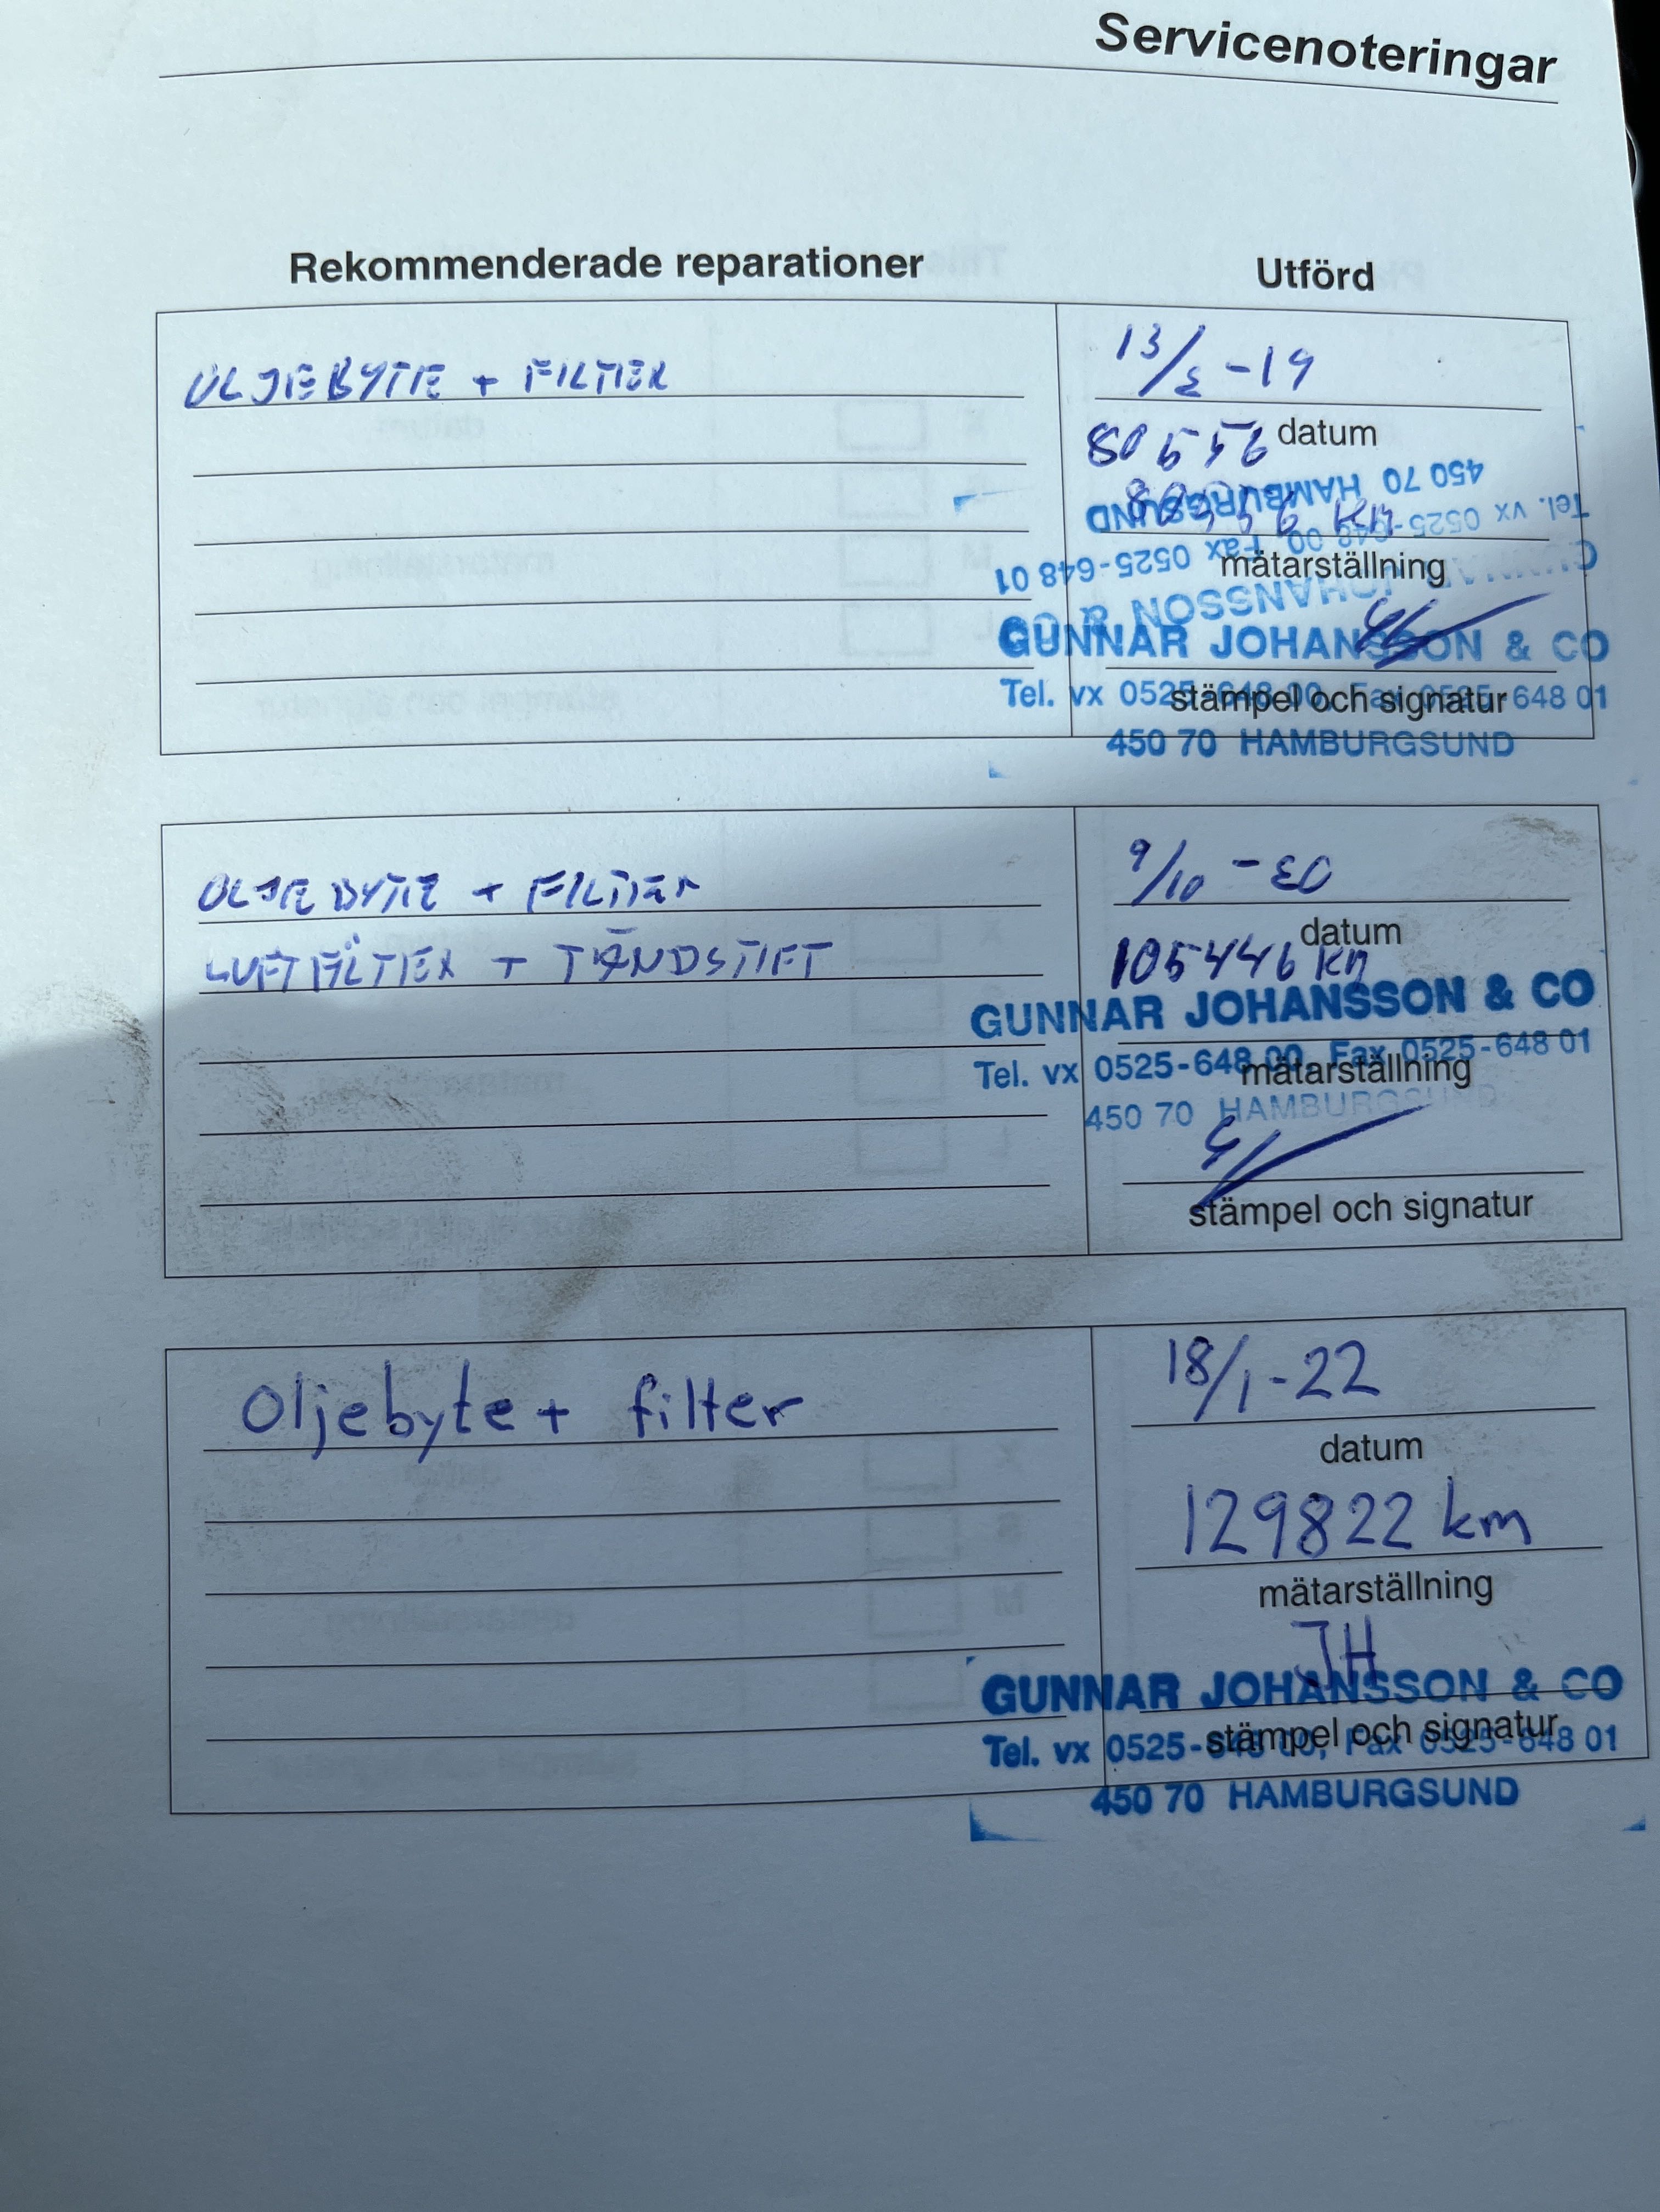 Servicenoteringar
Rekommenderade reparationer
Utförd
OLJEBYTE + FILTER
13/2 -19
datum
80556
450 70 HAMBURGSUND
km
Tel. vx 0525-648 00, Fax 0525-648 01
mätarställning
JOHANSSON & CO
GUNNAR JOHANSSON & CO
Tel. vx 0525-648 00, Fax 0525-648 01
stämpel och signatur
450 70 HAMBURGSUND
OLJEBYTE + FILTER
9/10 -20
datum
LUFTFILTER + TÄNDSTIFT
105446 km
GUNNAR JOHANSSON & CO
Tel. vx 0525-648 00, Fax 0525-648 01
mätarställning
450 70 HAMBURGSUND
stämpel och signatur
Oljebyte + filter
18/1-22
datum
129822 km
mätarställning
JH
GUNNAR JOHANSSON & CO
stämpel och signatur
Tel. vx 0525-648 00, Fax 0525-648 01
450 70 HAMBURGSUND